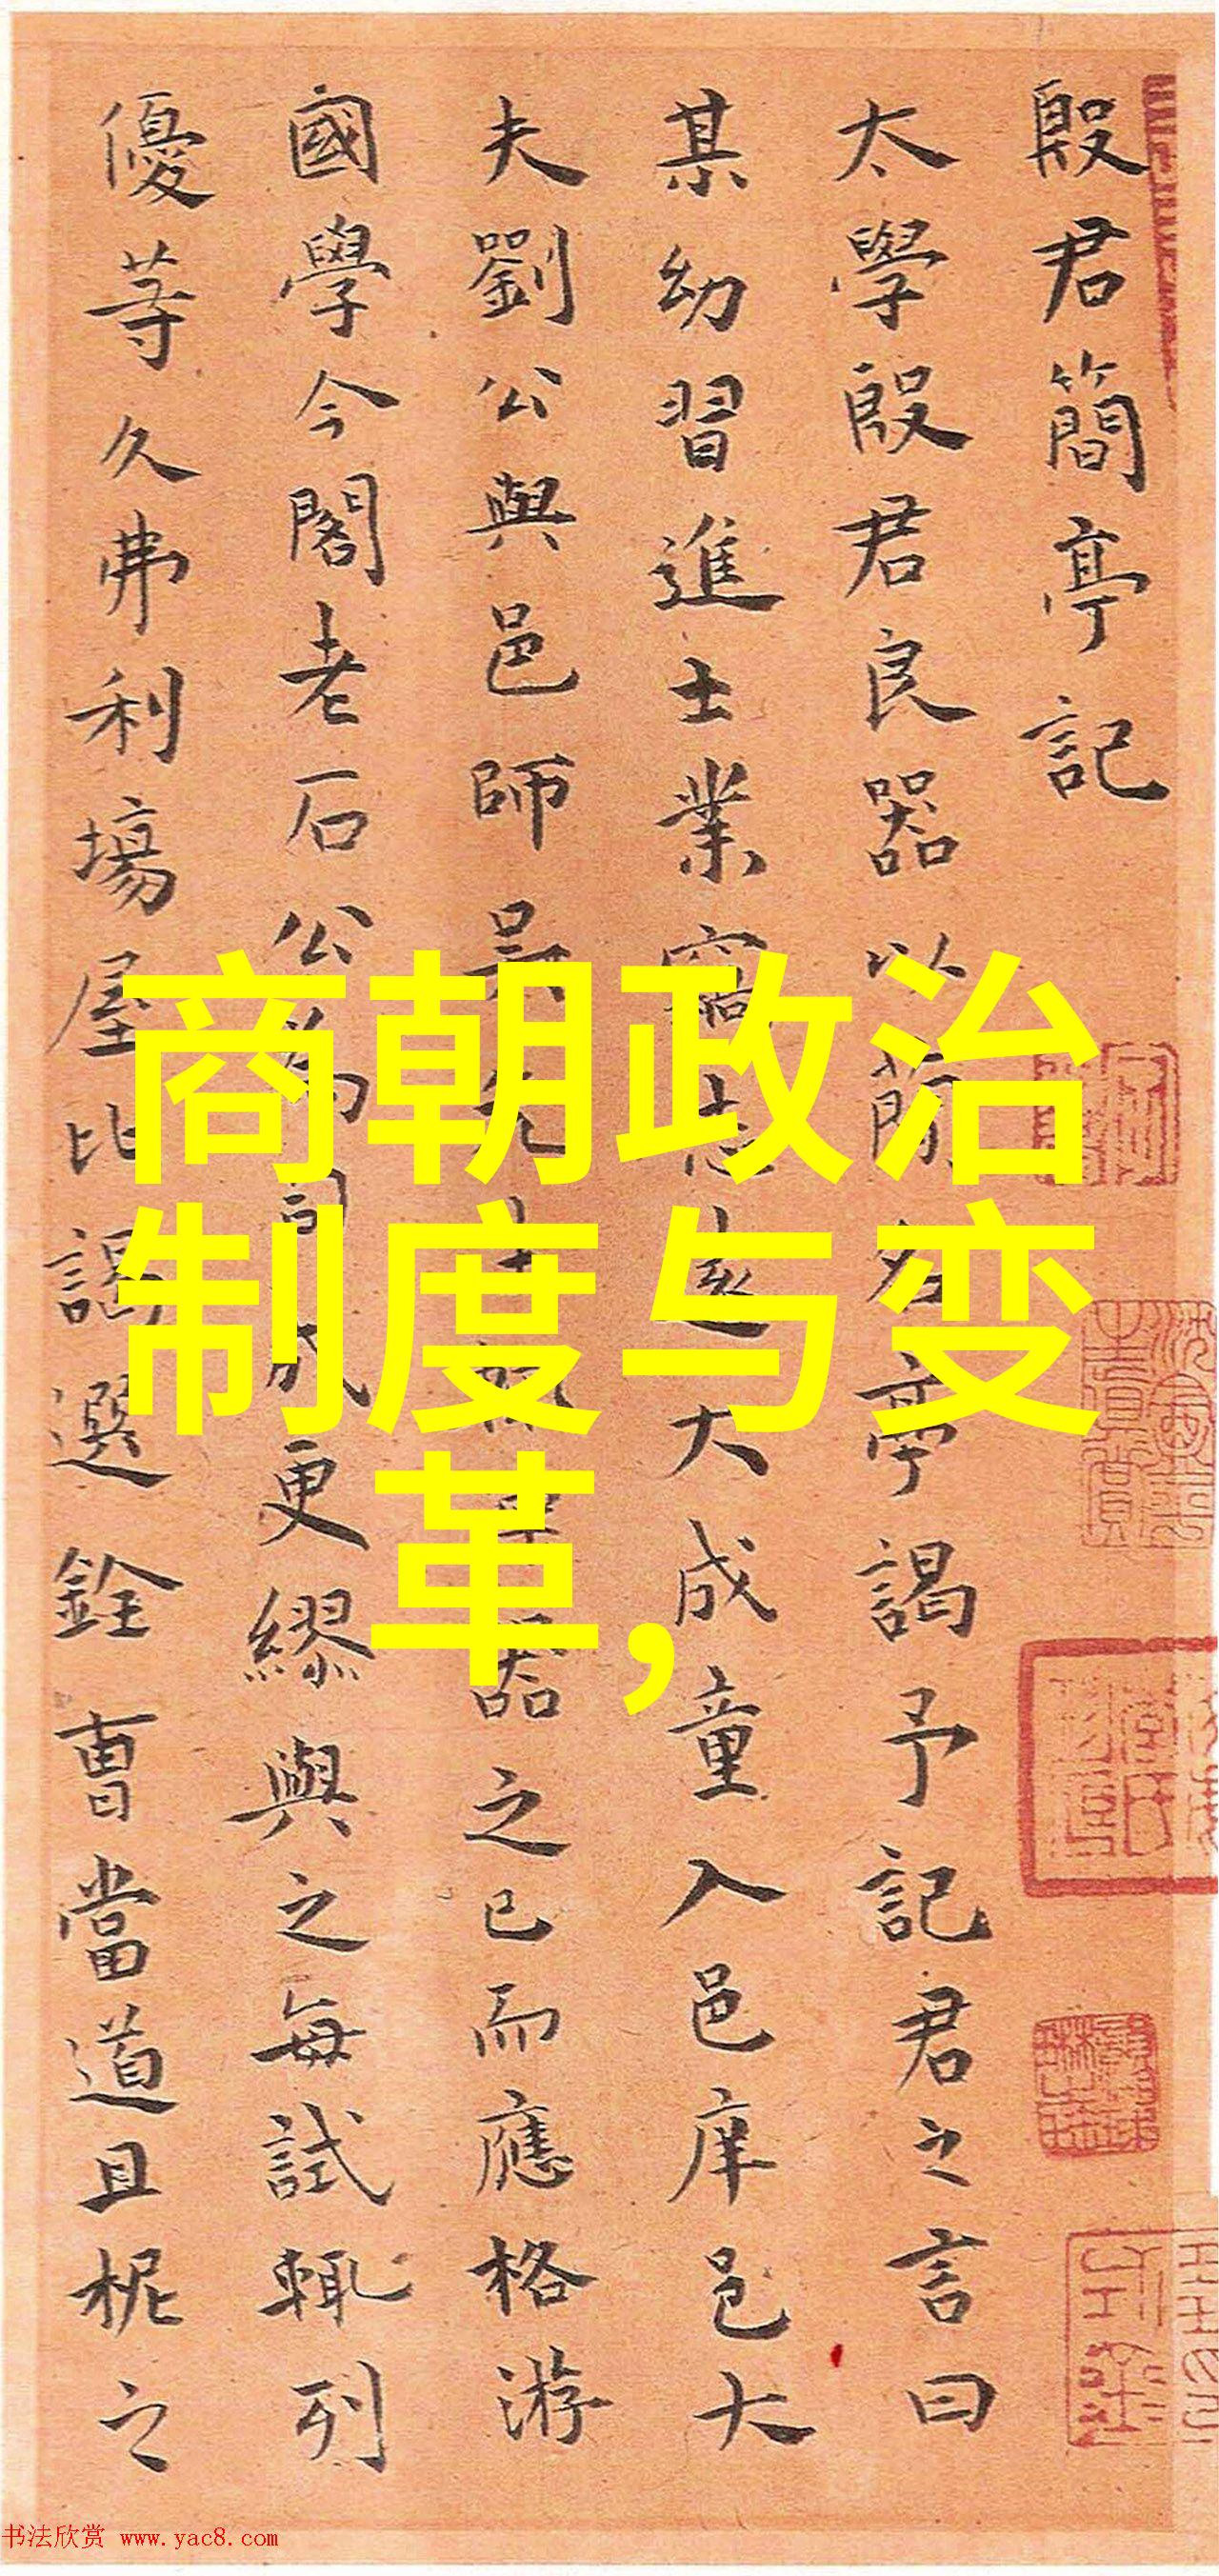 商朝政治
制度与变
革,
殷君簡亭記
太學殷君良器以簡名亭謁予記君之言曰
某幼習進士業志大成童入邑庠邑大
夫劉公與邑師吳先生器之已而應格游
國學今閣老石公為司成更繆與之每試輒列
優等久弗利場屋比謁選銓曹當道且柅之
书法欣赏 www.yac8.com